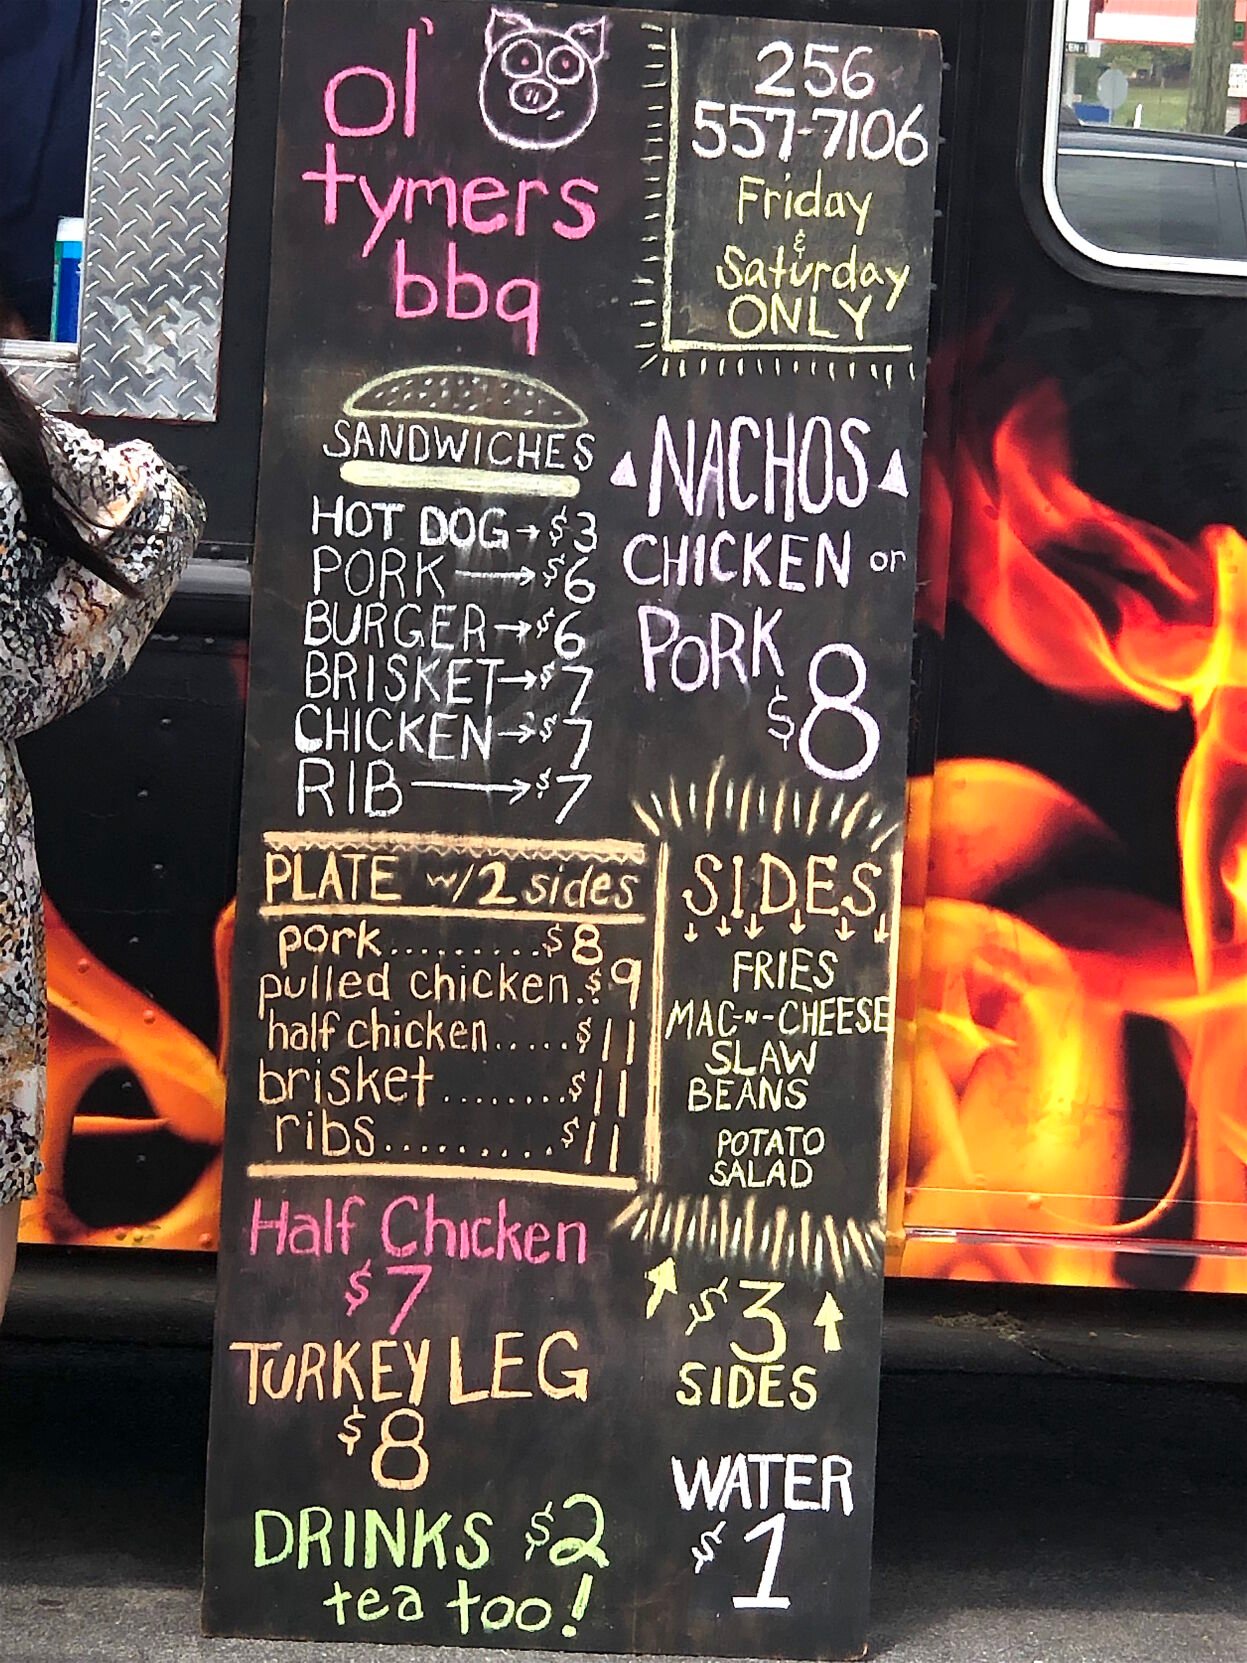 ol'
tymers
bbq
256
557-7106
Friday
&
Saturday
ONLY
SANDWICHES
HOT DOG→$3
PORK→$6
BURGER→$6
BRISKET→$7
CHICKEN→$7
RIB→$7
NACHOS
CHICKEN or
PORK
$8
PLATE w/2 sides
pork.........$8
pulled chicken..$9
half chicken.....$11
brisket........$11
ribs.........$11
SIDES
↓↓↓↓↓↓
FRIES
MAC-N-CHEESE
SLAW
BEANS
POTATO
SALAD
$3
SIDES
Half Chicken
$7
TURKEY LEG
$8
DRINKS $2
tea too!
WATER
$1